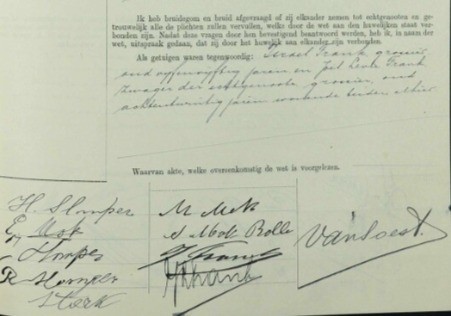 Ik heb bruidegom en bruid afgevraagd of zij elkander nemen tot echtgenooten en ge-
trouwelijk alle de plichten zullen vervullen, welke door de wet aan den huwelijken staat ver-
bonden zijn. Nadat deze vragen door hen bevestigend beantwoord werden, heb ik, in naam der
wet, uitspraak gedaan, dat zij door het huwelijk aan elkander zijn verbonden.
Als getuigen waren tegenwoordig: Israel Frank grossier,
oud jaren en Frank
zwager der echtgenoote, grossier, oud
achtentwintig jaren wonende beiden alhier
Waarvan akte, welke overeenkomstig de wet is voorgelezen.
H. Slomper
M Mok
E Mok
S Mok Bolle
van Soest.
Slomper
Frank
R Slomper
Frank
Sterk